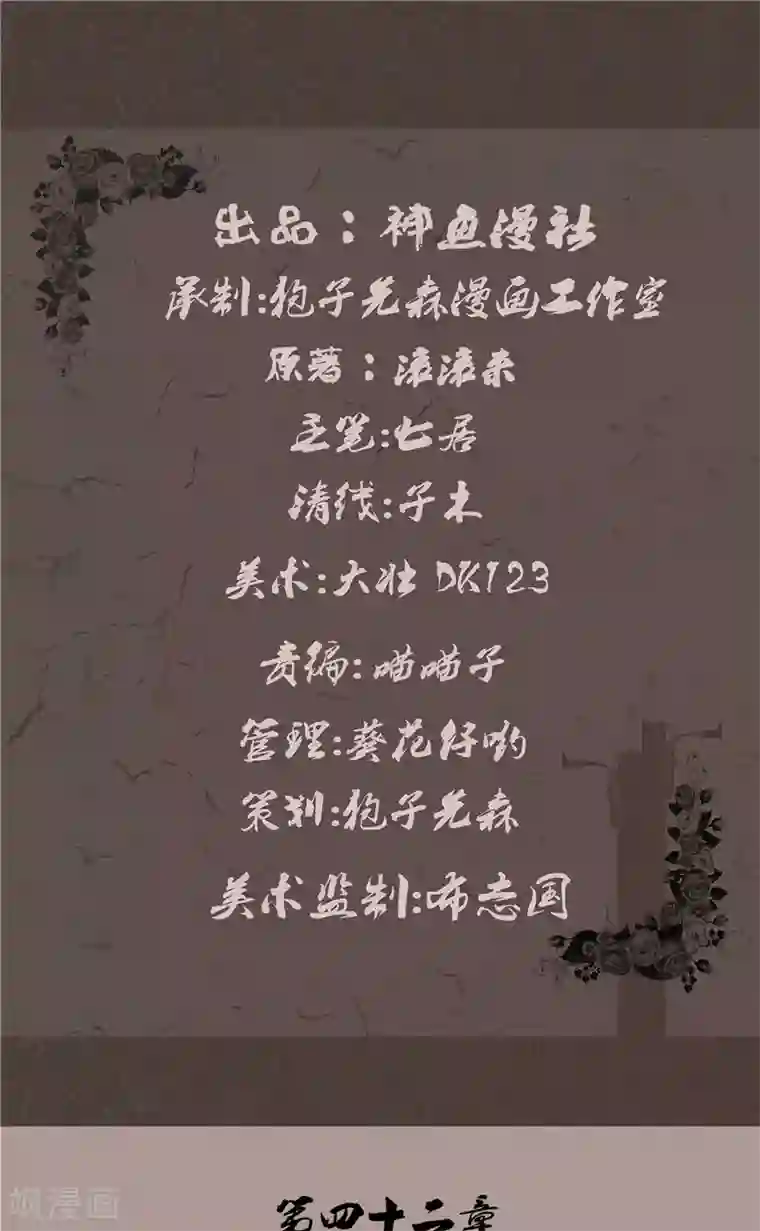 出品：神鱼漫社
承制:抱子光森漫画工作室
原著：滚滚来
主笔:七居
清线:子木
美术:大壮 DK123
责编:喵喵子
管理:葵花仔哟
策划:抱子光森
美术监制:布志国
第四十二章
飒漫画